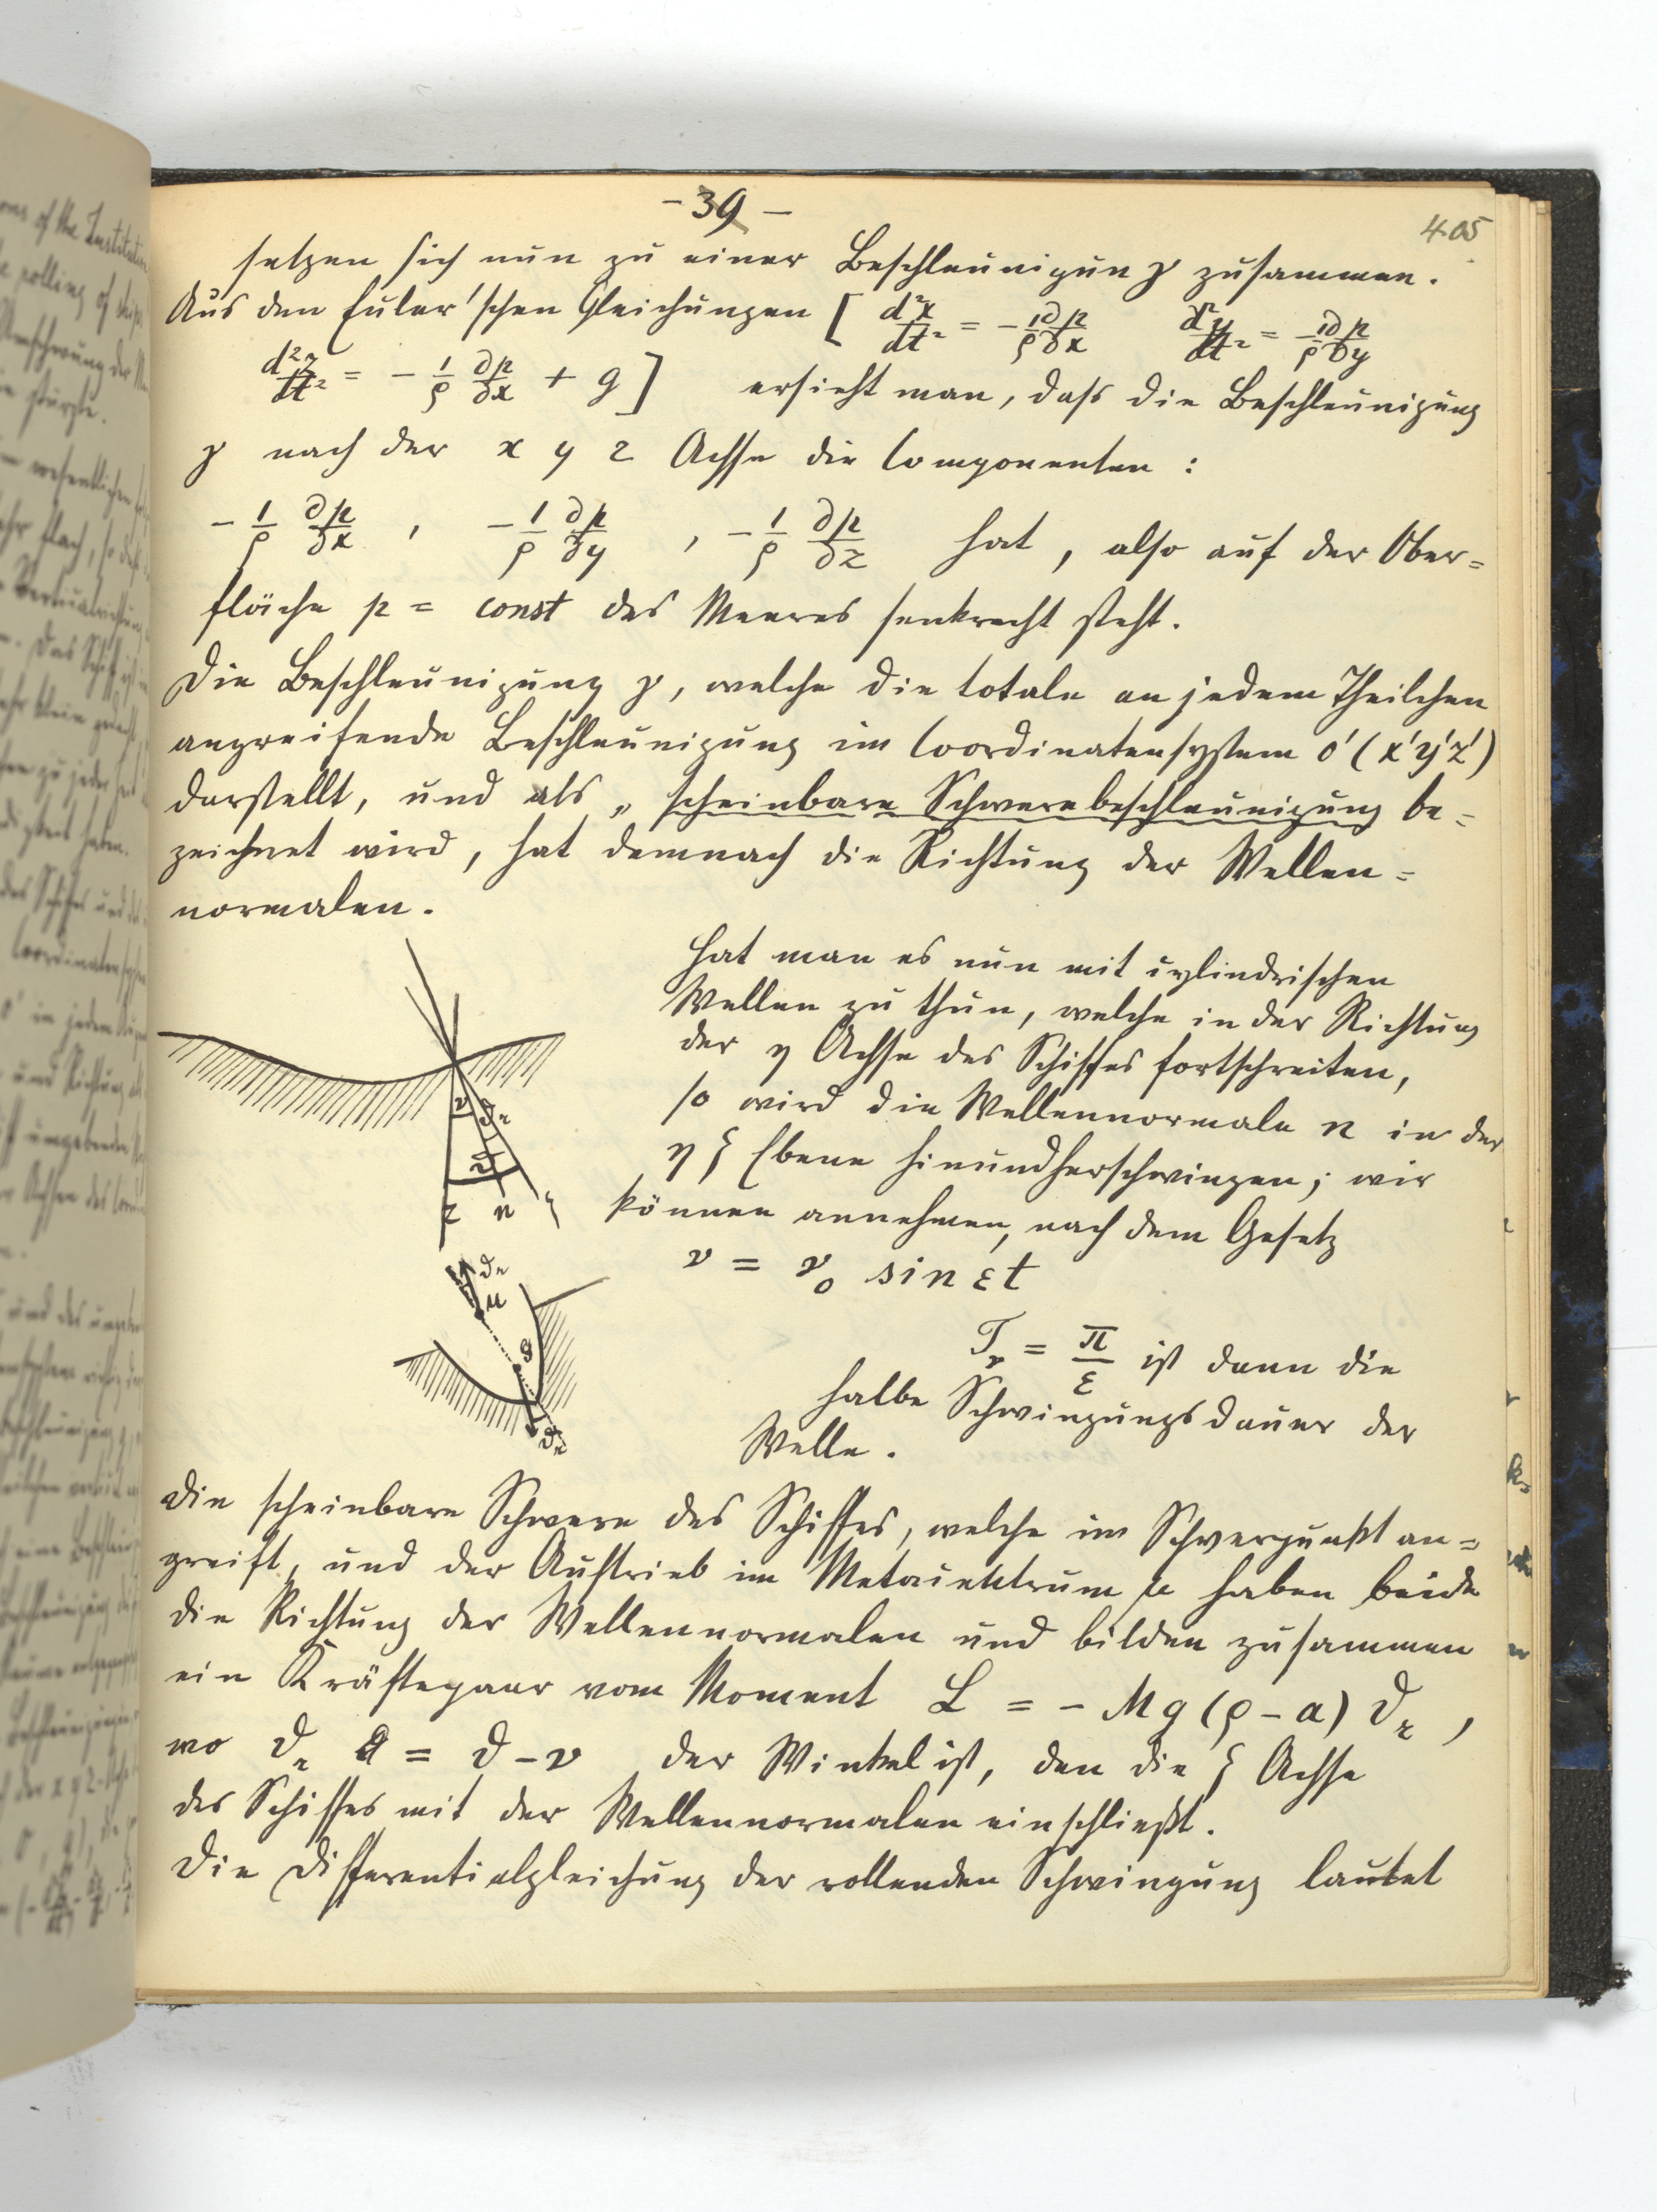 - 39 -
405
setzen sich nun zu einer Beschleunigung γ zusammen.
Aus den Euler'schen Gleichungen [ d²x/dt² = - 1/ρ ∂p/∂x   d²y/dt² = - 1/ρ ∂p/∂y
d²z/dt² = - 1/ρ ∂p/∂x + g ] ersieht man, dass die Beschleunigung
γ nach der x y z Achse die Componenten :
- 1/ρ ∂p/∂x , - 1/ρ ∂p/∂y , - 1/ρ ∂p/∂z hat, also auf der Ober=
fläche p = const des Meeres senkrecht steht.
Die Beschleunigung γ, welche die totale an jedem Theilchen
angreifende Beschleunigung im Coordinatensystem O' (x'y'z')
darstellt, und als „ scheinbare Schwerebeschleunigung be=
zeichnet wird, hat demnach die Richtung der Wellen=
normalen.
Hat man es nun mit cylindrischen
Wellen zu thun, welche in der Richtung
der η Achse des Schiffes fortschreiten,
so wird die Wellennormale n in der
η ζ Ebene hinundherschwingen; wir
können annehmen, nach dem Gesetz
ν = ν₀ sin εt
ν ϑr
ϑ
z n ζ
ϑr
μ
S
ϑr
Tν = π/ε ist dann die
halbe Schwingungsdauer der
Welle.
Die scheinbare Schwere des Schiffes, welche im Schwerpunkt an=
greift, und der Auftrieb im Metacentrum μ haben beide
die Richtung der Wellennormalen und bilden zusammen
ein Kräftepaar vom Moment L = - Mg (ρ - a) ϑr ,
wo ϑr = ϑ - ν der Winkel ist, den die ζ Achse
des Schiffes mit der Wellennormalen einschließt.
Die Differentialgleichung der rollenden Schwingung lautet